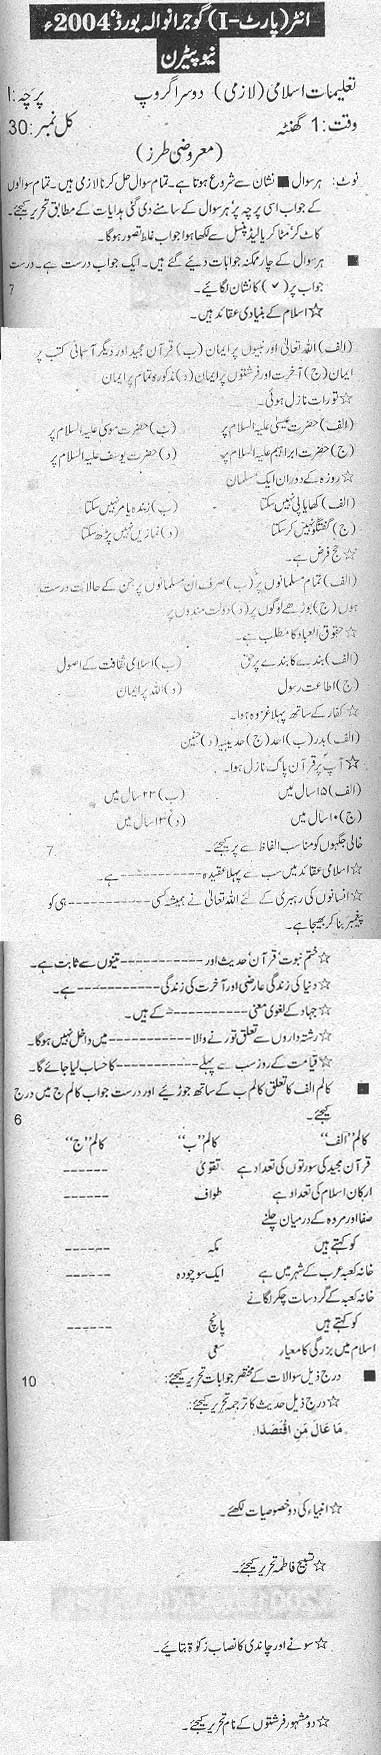 انٹر (پارٹ-I) گوجرانوالہ بورڈ 2004ء
نیو پیٹرن
تعلیمات اسلامی (لازمی) دوسرا گروپ پرچہ: I
وقت: 1 گھنٹہ کل نمبر: 30
(معروضی طرز)
نوٹ: ہر سوال ■ نشان سے شروع ہوتا ہے۔ تمام سوال حل کرنا لازمی ہیں۔ تمام سوالوں
کے جواب اسی پرچہ پر ہر سوال کے سامنے دی گئی ہدایات کے مطابق تحریر کیجئے۔
کاٹ کر، مٹا کر یا لیڈ پنسل سے لکھا ہوا جواب غلط تصور ہوگا۔
■ ہر سوال کے چار ممکنہ جوابات دیئے گئے ہیں۔ ایک جواب درست ہے۔ درست
جواب پر (✓) کا نشان لگائیے۔ 7
☆ اسلام کے بنیادی عقائد ہیں۔
(الف) اللہ تعالیٰ اور نبیوں پر ایمان (ب) قرآن مجید اور دیگر آسمانی کتب پر
ایمان (ج) آخرت اور فرشتوں پر ایمان (د) مذکورہ تمام پر ایمان
☆ تورات نازل ہوئی۔
(الف) حضرت عیسیٰ علیہ السلام پر (ب) حضرت موسیٰ علیہ السلام پر
(ج) حضرت ابراہیم علیہ السلام پر (د) حضرت یوسف علیہ السلام پر
☆ روزہ کے دوران ایک مسلمان
(الف) کھا پی نہیں سکتا (ب) زندہ مر نہیں سکتا
(ج) گفتگو نہیں کر سکتا (د) نمازیں نہیں پڑھ سکتا
☆ حج فرض ہے۔
(الف) تمام مسلمانوں پر (ب) صرف ان مسلمانوں پر جن کے حالات درست
ہوں (ج) بوڑھے لوگوں پر (د) دولت مندوں پر
☆ حقوق العباد کا مطلب ہے۔
(الف) بندے کا بندے پر حق (ب) اسلامی ثقافت کے اصول
(ج) اطاعت رسول (د) اللہ پر ایمان
☆ کفار کے ساتھ پہلا غزوہ ہوا۔
(الف) بدر (ب) احد (ج) حدیبیہ (د) حنین
☆ آپؐ پر قرآن پاک نازل ہوا۔
(الف) ۱۵ سال میں (ب) ۲۳ سال میں
(ج) ۱۰ سال میں (د) ۱۳ سال میں
خالی جگہوں کو مناسب الفاظ سے پر کیجئے۔ 7
☆ اسلامی عقائد میں سب سے پہلا عقیدہ ---------- ہے۔
☆ انسانوں کی رہبری کے لئے اللہ تعالیٰ نے ہمیشہ کسی ---------- ہی کو
پیغمبر بنا کر بھیجا ہے۔
☆ ختم نبوت، قرآن، حدیث اور ---------- تینوں سے ثابت ہے۔
☆ دنیا کی زندگی عارضی اور آخرت کی زندگی ---------- ہے۔
☆ جہاد کے لغوی معنی ---------- کے ہیں۔
☆ رشتہ داروں سے تعلق توڑنے والا ---------- میں داخل نہیں ہوگا۔
☆ قیامت کے روز سب سے پہلے ---------- کا حساب لیا جائے گا۔
■ کالم الف کا تعلق کالم ب کے ساتھ جوڑئیے اور درست جواب کالم ج میں درج
کیجئے۔ 6
کالم "الف" کالم "ب" کالم "ج"
قرآن مجید کی سورتوں کی تعداد ہے تقویٰ ------
ارکان اسلام کی تعداد ہے طواف ------
صفا اور مروہ کے درمیان چلنے
کو کہتے ہیں مکہ ------
خانہ کعبہ عرب کے شہر میں ہے ایک سو چودہ ------
خانہ کعبہ کے گرد سات چکر لگانے
کو کہتے ہیں پانچ ------
اسلام میں بزرگی کا معیار سعی
■ درج ذیل سوالات کے مختصر جوابات تحریر کیجئے۔ 10
☆ درج ذیل حدیث کا ترجمہ تحریر کیجئے:
مَا عَالَ مَنِ اقْتَصَدَا.
☆ انبیاء کی دو خصوصیات لکھئے۔
☆ تسبیح فاطمہ تحریر کیجئے۔
☆ سونے اور چاندی کا نصاب زکوٰۃ بتائیے۔
☆ دو مشہور فرشتوں کے نام تحریر کیجئے۔